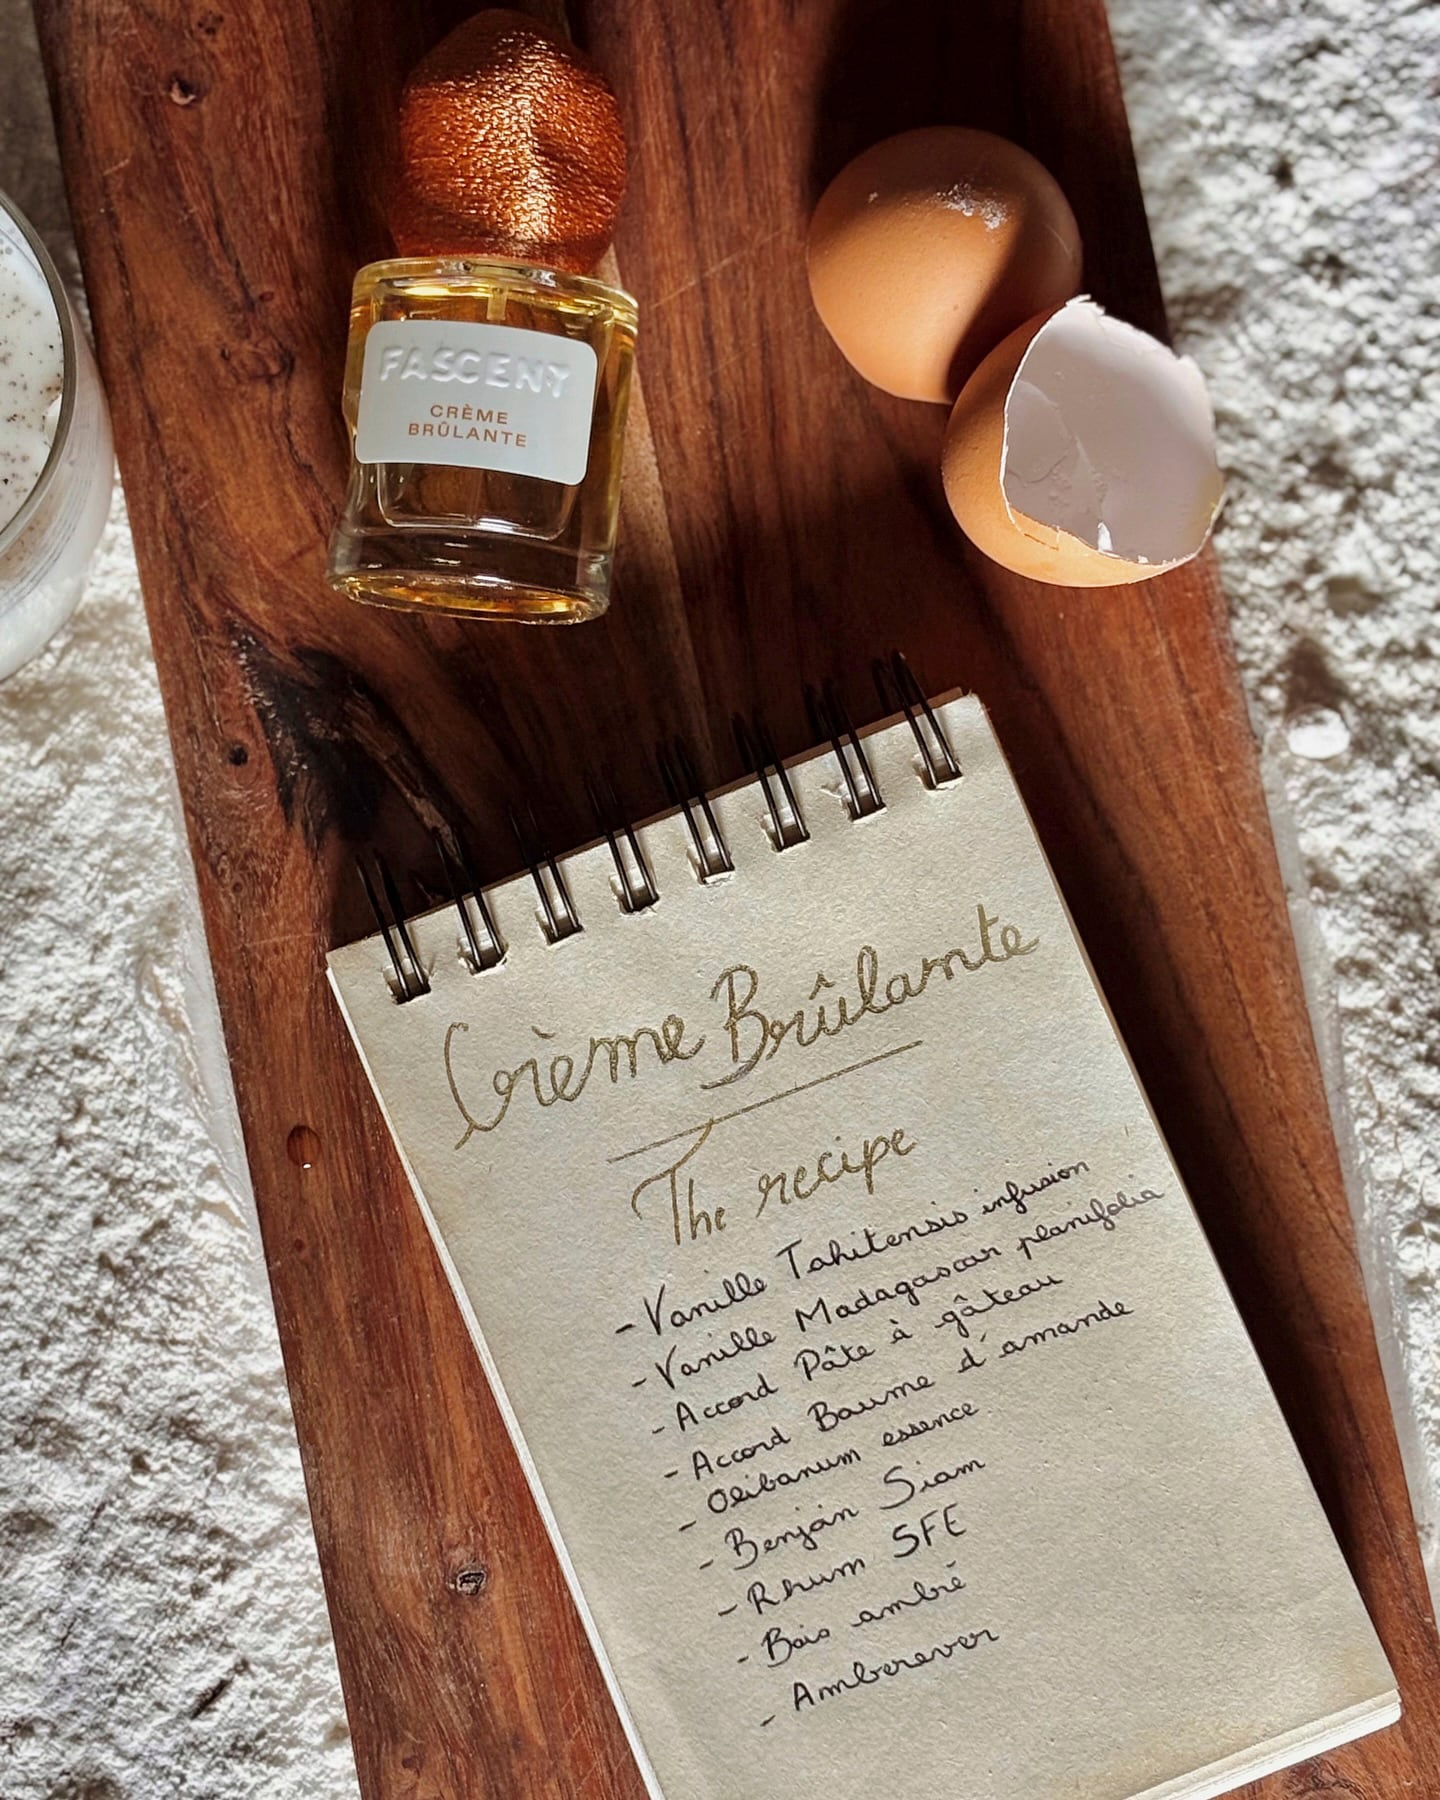 FASCENT
CRÈME
BRÛLANTE
Crème Brûlante
The recipe
- Vanille Tahitensis infusion
- Vanille Madagascar planifolia
- Accord Pâte à gâteau
- Accord Baume d'amande
- Olibanum essence
- Benjoin Siam
- Rhum SFE
- Bois ambré
- Amberever